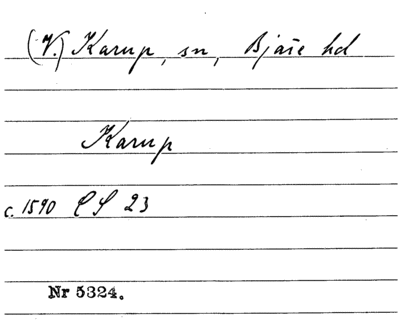 (V.) Karup, sn, Bjäre hd
Karup
c. 1590 CS 23
Nr 5324.